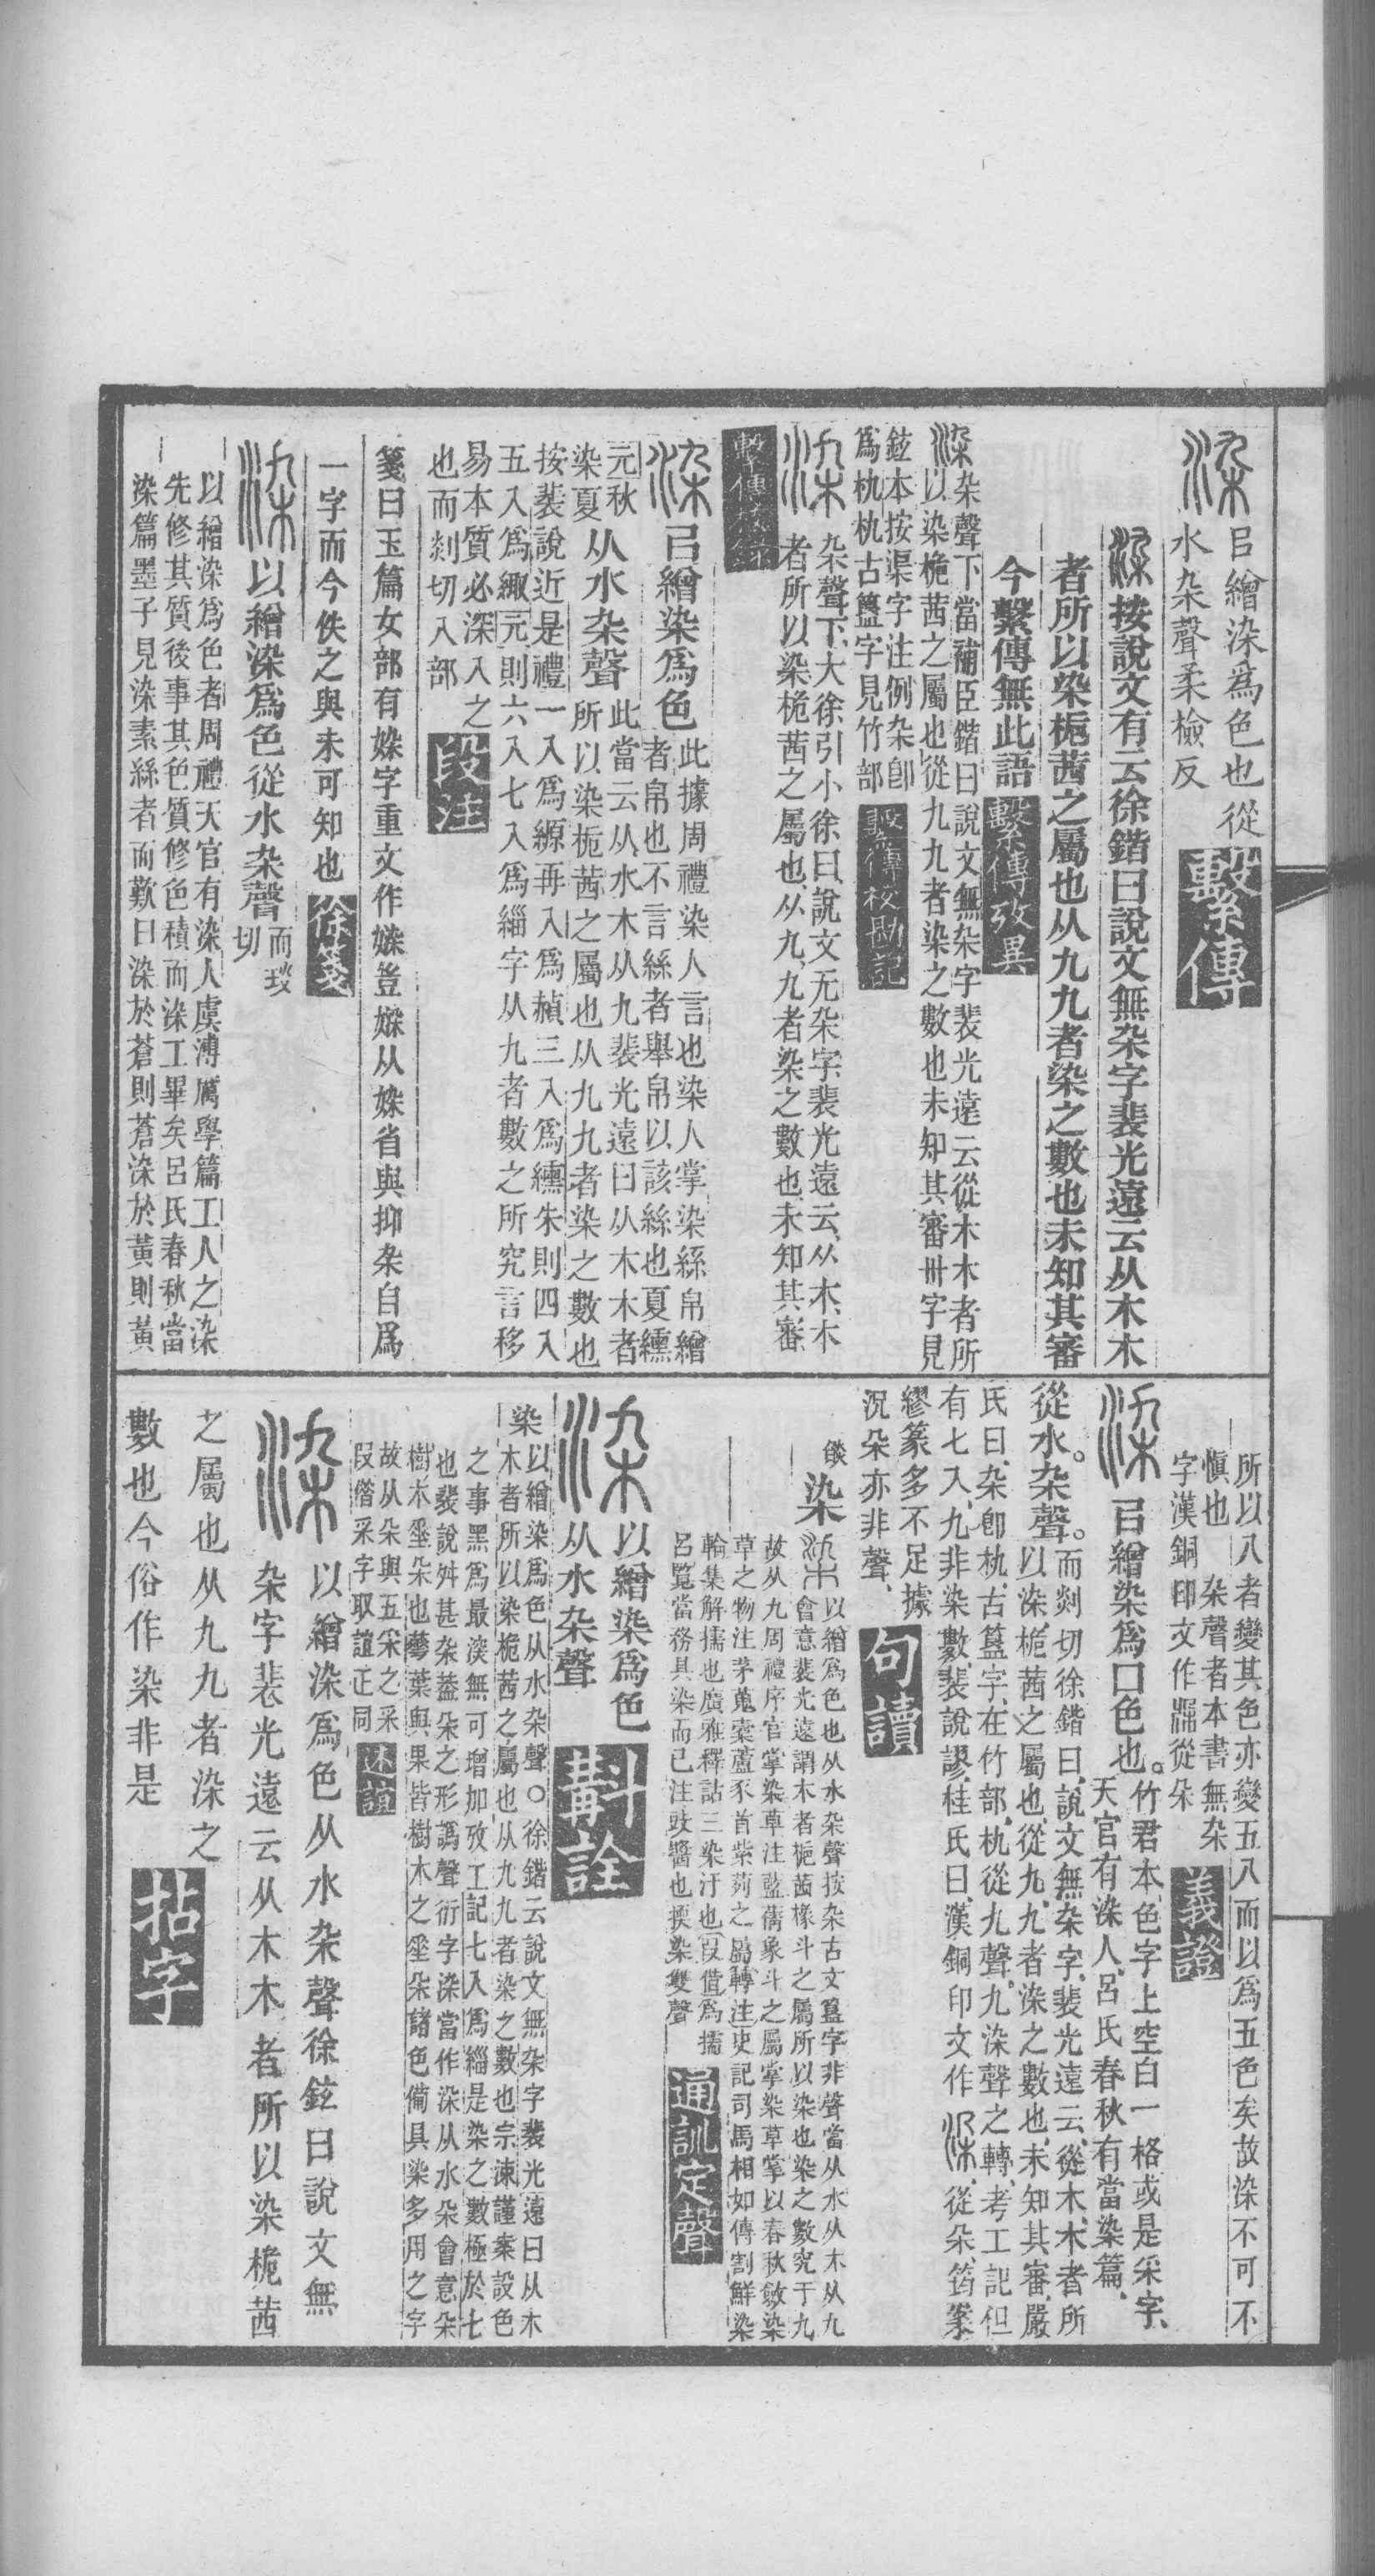 㠯繒染爲色也從
水杂聲柔檢反
繫傳
按說文有云徐鍇曰說文無杂字裴光遠云从木木
者所以染梔茜之屬也从九九者染之數也未知其審
今繫傳無此語
繫傳攷異
染杂聲下當補臣鍇曰說文無杂字裴光遠云從木木者所
以染桅茜之屬也從九九者染之數也未知其審卌字見
鉉本按渠字注例杂卽
爲朹朹古簋字見竹部
繫傳校勘記
杂聲下大徐引小徐曰說文无杂字裴光遠云从木木
者所以染桅茜之屬也从九九者染之數也未知其審
繫傳校錄
㠯繒染爲色
此據周禮染人言也染人掌染絲帛繒
者帛也不言絲者舉帛以該絲也夏纁
元秋
染夏
从水杂聲
此當云从水木从九裴光遠曰从木木者
所以染梔茜之屬也从九九者染之數也
按裴說近是禮一入爲縓再入爲赬三入爲纁朱則四入
五入爲緅元則六入七入爲緇字从九者數之所究言移
易本質必深入之
也而剡切八部
段注
箋曰玉篇女部有㛊字重文作媣豈媣从㛊省與抑杂自爲
一字而今佚之與未可知也
徐箋
以繒染爲色從水杂聲
而琰
切
以繒染爲色者周禮天官有染人虞溥厲學篇工人之染
先修其質後事其色質修色積而染工畢矣呂氏春秋當
染篇墨子見染素絲者而歎曰染於蒼則蒼染於黃則黃
所以入者變其色亦變五入而以爲五色矣故染不可不
愼也
杂聲者本書無杂
字漢銅印文作𣹟從朵
義證
㠯繒染爲囗色也。
竹君本色字上空白一格或是采字、
天官有染人、呂氏春秋有當染篇、
從水。杂聲。
而剡切徐鍇曰、說文無杂字、裴光遠云、從木、木者所
以染桅茜之屬也、從九、九者染之數也、未知其審、嚴
氏曰、杂卽朹、古簋字、在竹部、朹從九聲、九染聲之轉、考工記但
有七入、九非染數、裴說謬、桂氏曰、漢銅印文作、從朵、筠案
繆篆多不足據、
況朵亦非聲、
句讀
燄
染
以繒爲色也从水杂聲按杂古文簋字非聲當从水从木从九
會意裴光遠謂木者梔茜橡斗之屬所以染也染之數究于九
故从九周禮序官掌染草注藍蒨象斗之屬掌染草掌以春秋斂染
草之物注茅蒐橐蘆豕首紫茢之屬轉注史記司馬相如傳割鮮染
輪集解擩也廣雅釋詁三染汙也叚借爲擩
呂覽當務具染而已注豉醬也㨎染雙聲
通訓定聲
以繒染爲色
从水杂聲
斠詮
染
以繒染爲色从水杂聲○徐鍇云說文無杂字裴光遠曰从木
木者所以染桅茜之屬也从九九者染之數也宗涑謹案設色
之事黑爲最深無可增加攷工記七入爲緇是染之數極於七
也裴說舛甚杂葢朵之形譌聲衍字染當作㴰从水朵會意朵
樹木𠂹朵也蕚葉與果皆樹木之𠂹朵諸色備具染多用之字
故从朵與五采之采
叚借采字取誼正同
述誼
以繒染爲色从水杂聲徐鉉曰說文無
杂字裴光遠云从木木者所以染桅茜
之屬也从九九者染之
數也今俗作染非是
拈字